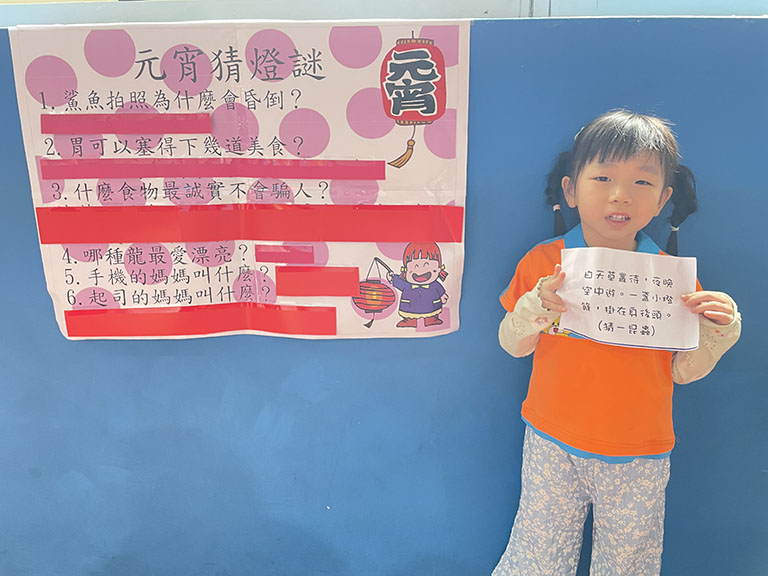 元宵猜燈謎
元宵
1. 鯊魚拍照為什麼會昏倒？
2. 胃可以塞得下幾道美食？
3. 什麼食物最誠實不會騙人？
4. 哪種龍最愛漂亮？
5. 手機的媽媽叫什麼？
6. 起司的媽媽叫什麼？
白天草裏待，夜晚
空中遊。一盞小燈
籠，掛在身後頭。
(猜一昆蟲)